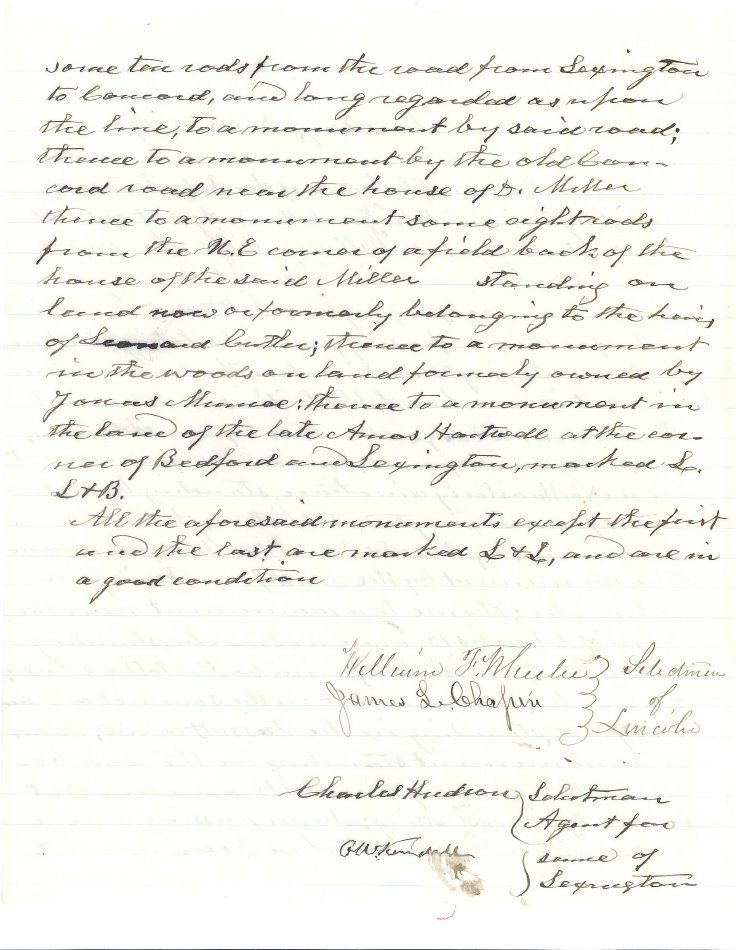 some ten rods from the road from Lexington
to Concord, and long regarded as upon
the line, to a monument by said road;
thence to a monument by the old Con-
cord road near the house of D. Miller
thence to a monument some eight rods
from the N.E corner of a field back of the
house of the said Miller standing on
land now or formerly belonging to the heirs
of Leonard Cutler; thence to a monument
in the woods on land formerly owned by
Jonas Munroe; thence to a monument in
the land of the late Amos Hartwell at the cor-
ner of Bedford and Lexington, marked L.
L & B.
All the aforesaid monuments except the first
and the last are marked L & L, and are in
a good condition
William F. Wheeler } Selectmen
James L. Chapin } of
} Lincoln
Charles Hudson } Selectman
Agent for
C.W. Kendall } some of
Lexington